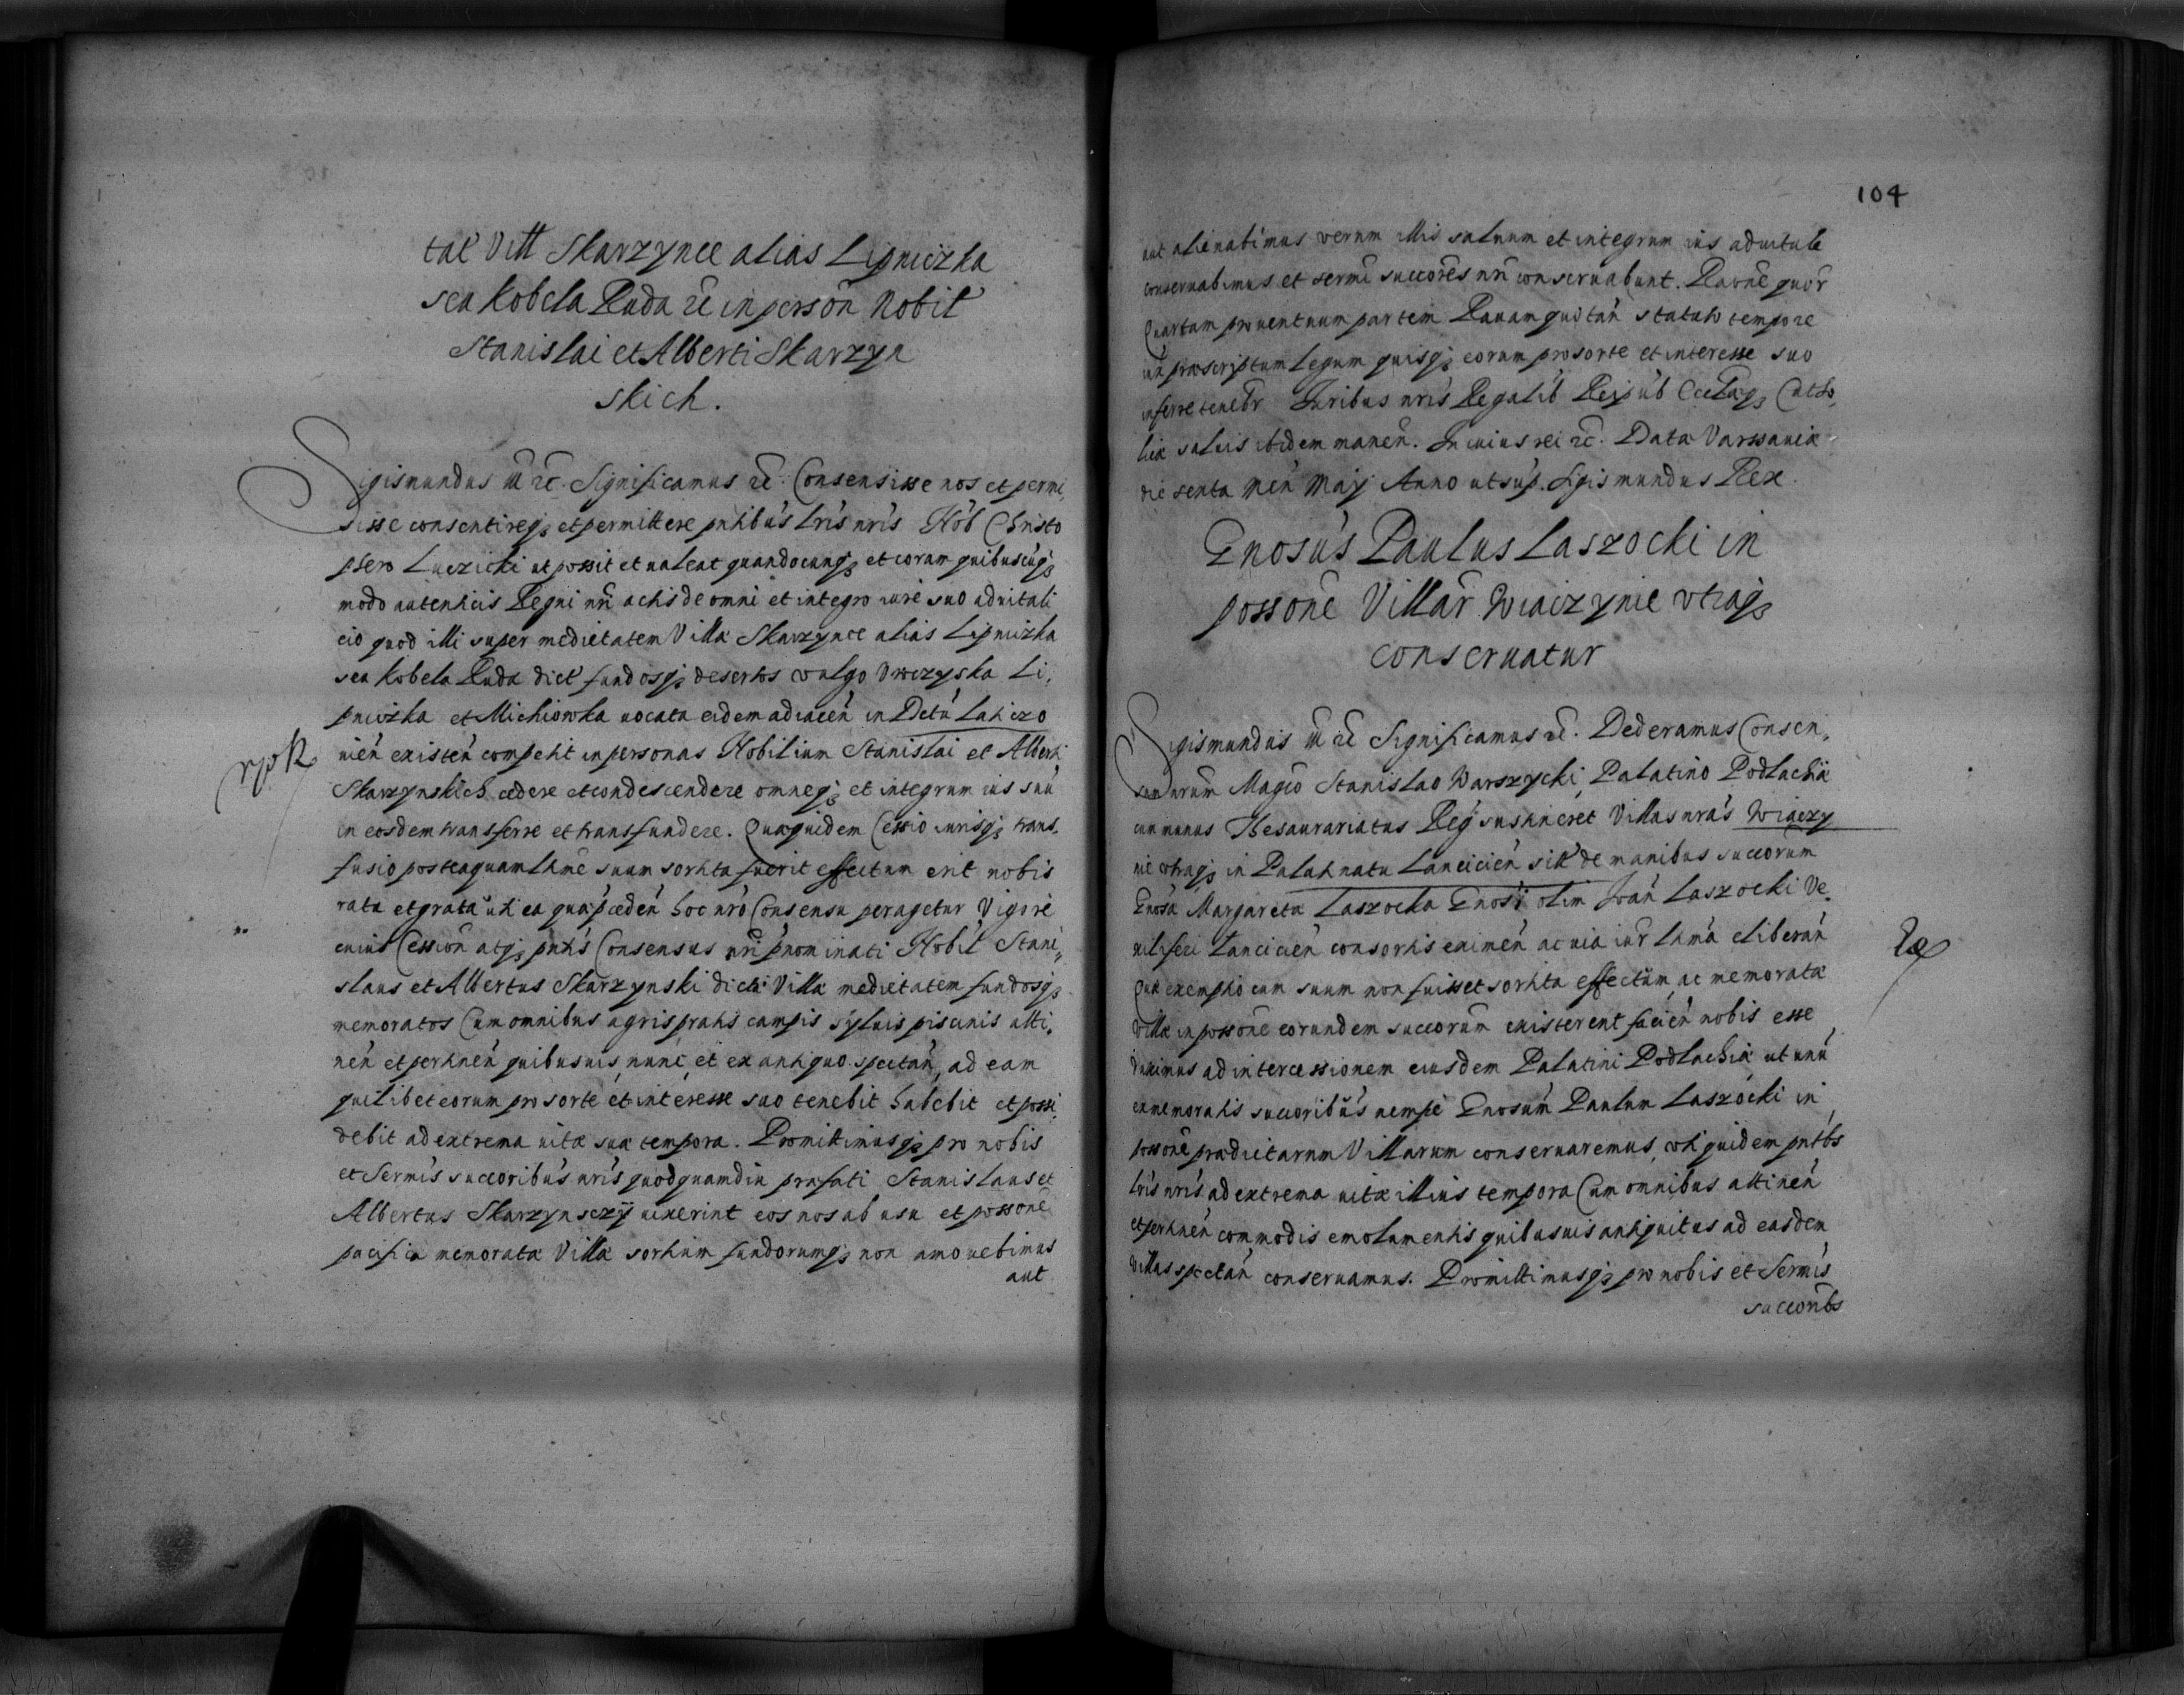 tał Vill Skarzynce alias Lipniczka
seu Kobela Ruda etc in person Nobil
Stanislai et Alberti Skarzyn
skich.
Sigismundus III etc. Significamus etc. Consensisse nos et permi,
sisse consentireq; et permittere pntibus lris nris Nob Christo
phero Luczicki ut possit et ualeat quandocunq; et coram quibuscuq;
modo autenticis Regni nri actis de omni et integro iure suo aduitali
cio quod illi super medietatem Villæ Skarzynce alias Lipniczka
seu Kobela Ruda dict fundosq; desertos vulgo Vroczyska Li,
pniczka et Michiowka uocata eidem adiacen in Dctu
uien existen competit in personas Nobilium Stanislai et Alberti
Skarzynskich cedere et condescendere omneq; et integrum ius suu
in eosdem transferre et transfundere. Quæquidem Cessio iurisq; trans.
fusio posteaquam lttme suum sortita fuerit effectum erit nobis
rata et grata uti ea quæ pceden hoc nro Consensu peragetur Vigore
cuius Cession atq; pntis Consensus nri pnominati Nobil Stani,
slaus et Albertus Skarzynski dictæ Villæ medietatem fundosq;
memoratos Cum omnibus agris pratis campis syluis piscinis atti,
nen et pertinen quibusuis, nunc, et ex antiquo spectan, ad eam
quilibet eorum pro sorte et interesse suo tenebit habebit et possi,
debit ad extrema uitæ suæ tempora. Promittimusq; pro nobis
et Sermis succoribus nris quod quamdiu præfati Stanislaus et
Albertus Skarzynsczy uixerint eos nos ab usu et possone
pacifica memoratæ Villæ sortium fundorumq; non amouebimus
aut
104
aut alienabimus verum illis saluum et integrum ius aduitale
conseruabimus et sermi succores nri conseruabunt. Raone quor
Quartam prouentuum partem Rauam quotan statuto tempore
iux præscriptum Legum quisq; eorum pro sorte et interesse suo
inferre tenebr Iuribus nris Regalib Reipub Ecclæq; Catho,
licæ saluis ibidem manen. In cuius rei etc. Data Varssauiæ
die sexta Men Maij Anno ut sup. Sigismundus Rex.
Gnosus Paulus Laszocki in
possone Villar Wiaczynie vtraq;
conseruatur
Sigismundus III etc Significamus etc. Dederamus Consen,
sum nrum Magco Stanislao Warszycki, Palatino Podlachiæ
cum munus Thesaurariatus Regij sustineret Villas nras Wiączy
nie vtraq; in Palatinatu Lancicien sitt de manibus succorum
Gnosæ Margaretæ Laszocka Gnosi olim Joan Laszocki Ve,
xiliferi Lancicien consortis eximen ac uia iur lttma eliberan
Quæ exemptio cum suum non fuisset sortita effectum, ac memoratæ
Villæ in possone eorundem succorum existerent facien nobis esse
duximus ad intercessionem eiusdem Palatini Podlachiæ, ut unu
ex memoratis succoribus nempe Gnosum Paulum Laszocki in
possone prædictarum Villarum conseruaremus, vti quidem pntbs
lris nris ad extrema uitæ illius tempora Cum omnibus attinen
et pertinen commodis emolumentis quibusuis antiquitus ad easdem
Villas spectan conseruamus. Promittimusq; pro nobis et Sermis
succoribs